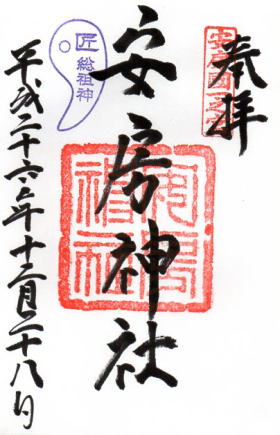 奉拝
安房国一之宮
安房神社
匠
総祖神
平成二十六年十二月二十八日